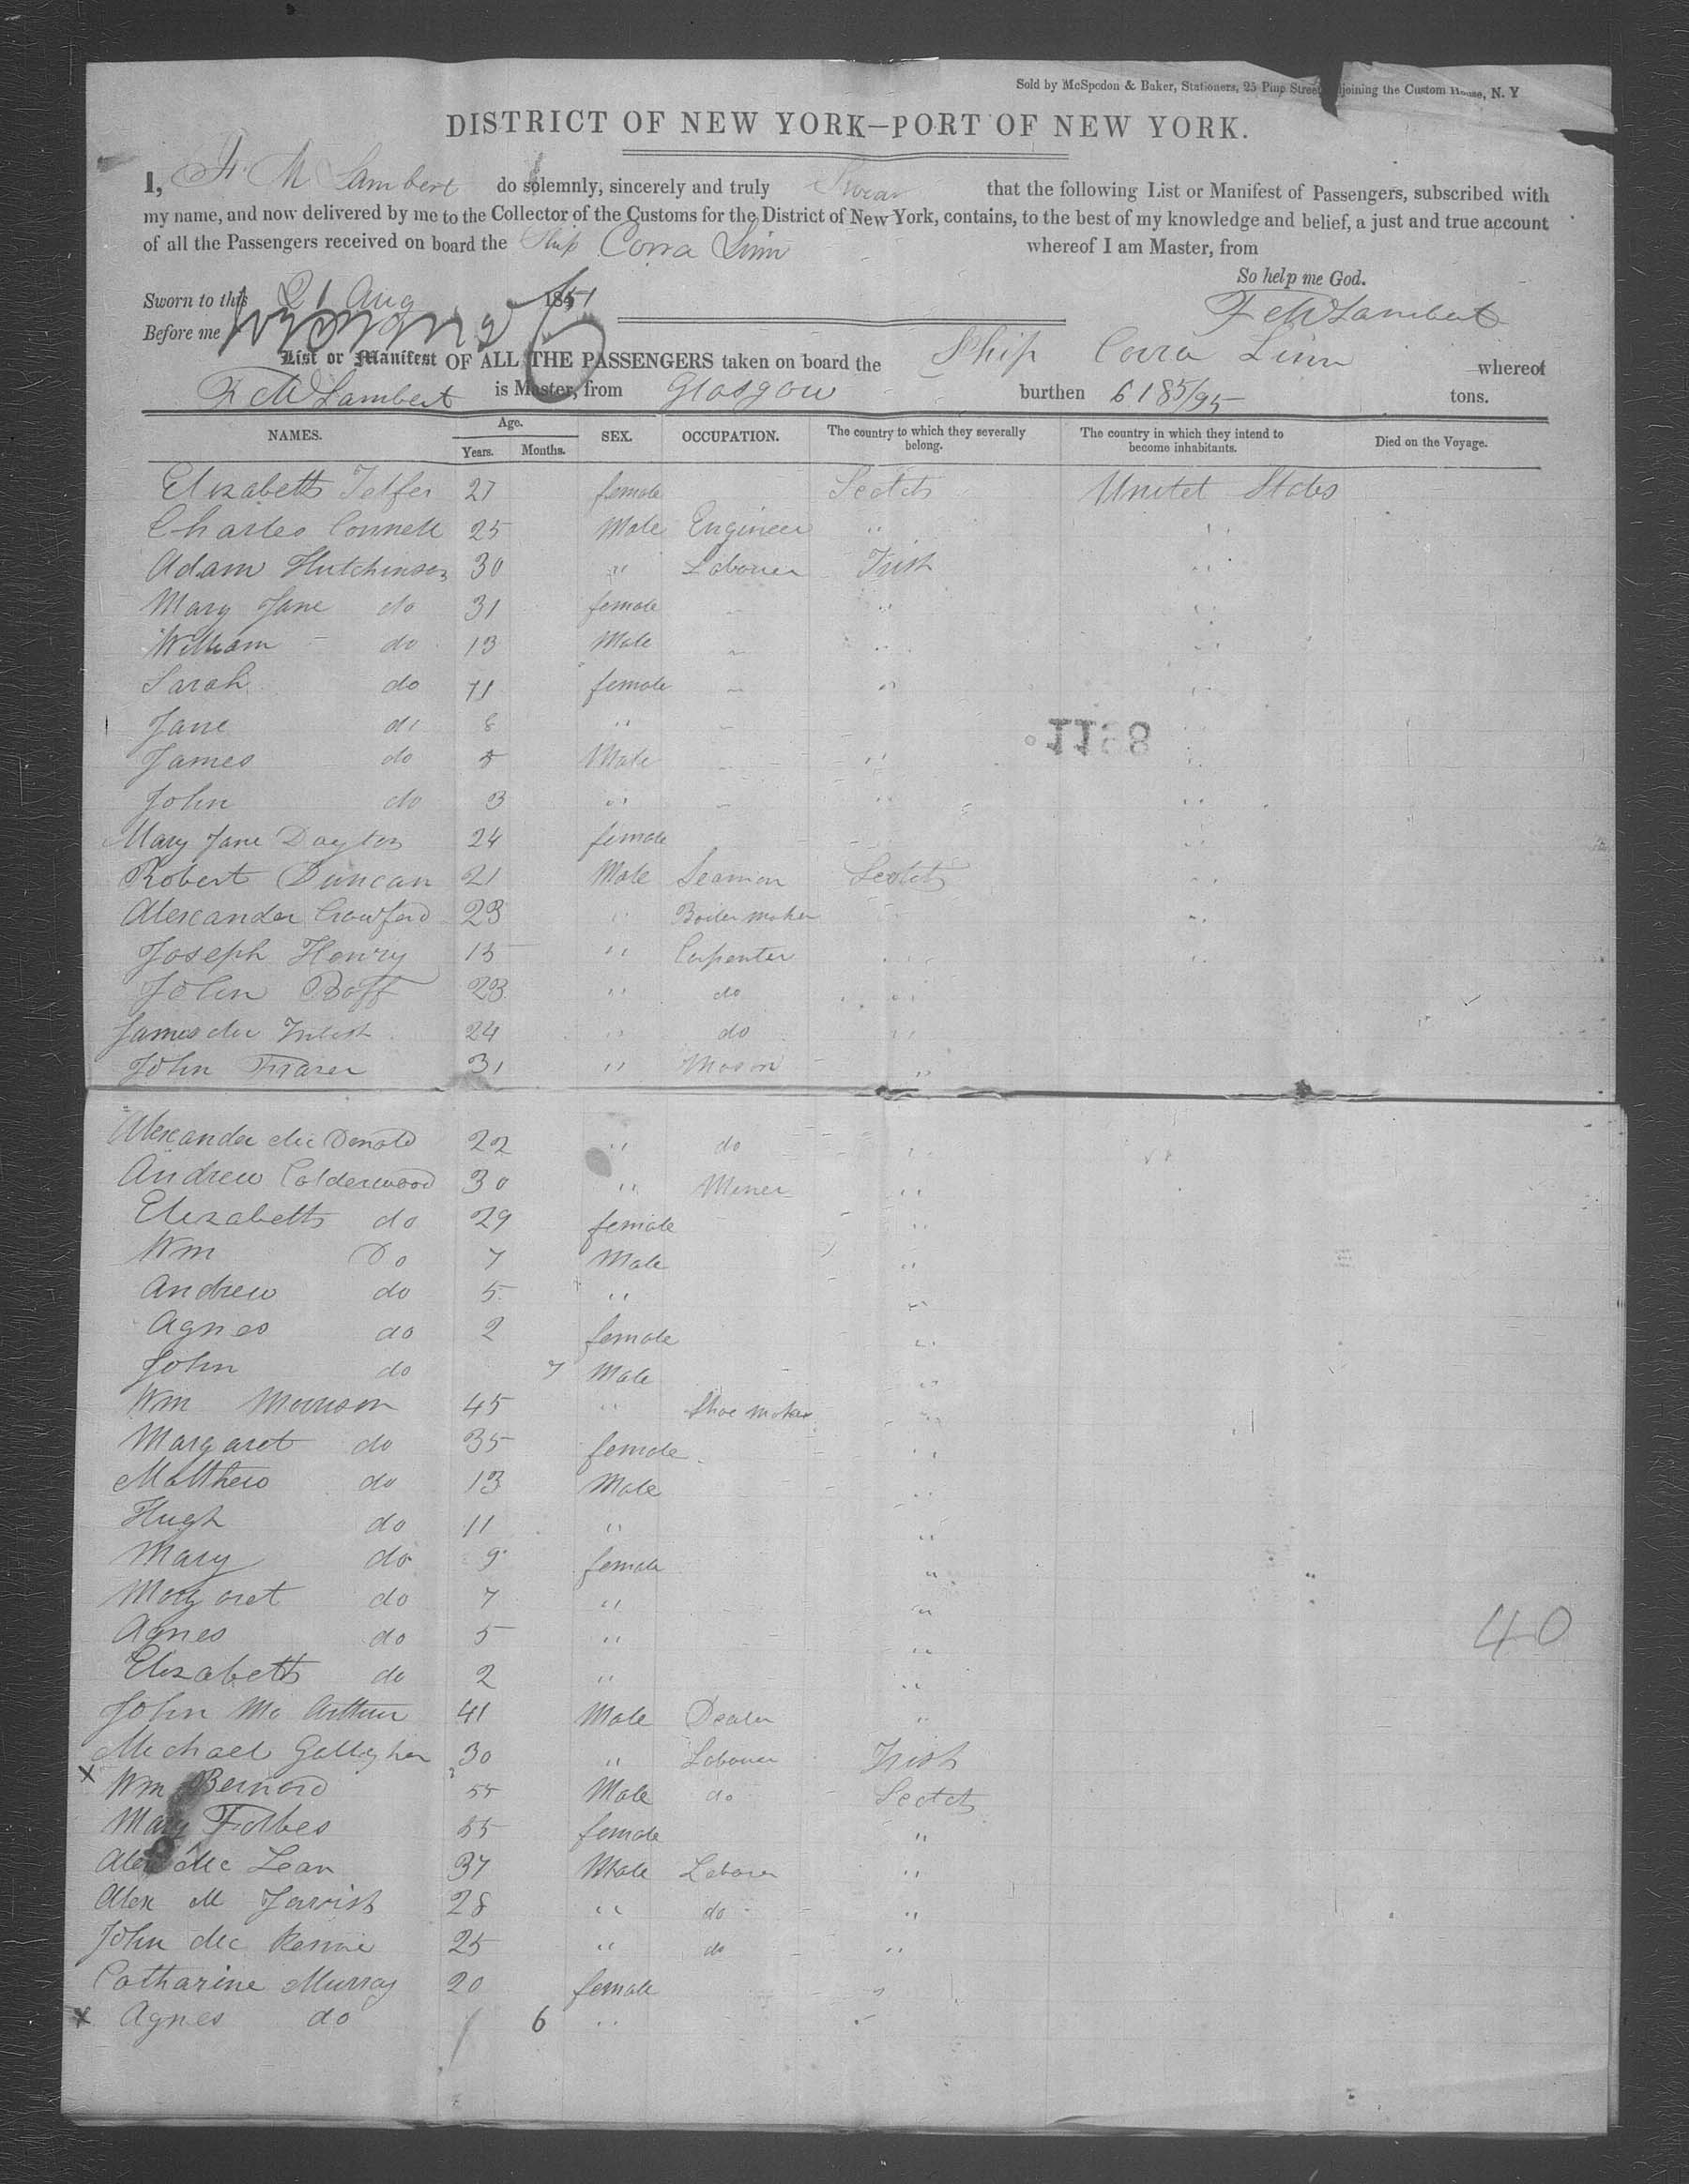 Sold by McSpedon & Baker, Stationers, 25 Pine Street, joining the Custom House, N. Y
DISTRICT OF NEW YORK—PORT OF NEW YORK.
I, F. M Lambert do solemnly, sincerely and truly Swear that the following List or Manifest of Passengers, subscribed with
my name, and now delivered by me to the Collector of the Customs for the District of New York, contains, to the best of my knowledge and belief, a just and true account
of all the Passengers received on board the Ship Corra Linn whereof I am Master, from
So help me God.
Sworn to this 21 Aug 1851
F M Lambert
Before me
List or Manifest OF ALL THE PASSENGERS taken on board the Ship Corra Linn whereof
F M Lambert is Master, from Glasgow burthen 618 5/95 tons.
NAMES. Age. Years. Months. SEX. OCCUPATION. The country to which they severally belong. The country in which they intend to become inhabitants. Died on the Voyage.
Elizabeth Telfer 27 female Scotch United States
Charles Connell 25 Male Engineer " "
Adam Hutchinson 30 " Labourer Irish "
Mary Jane do 31 female " "
William do 13 Male " "
Sarah do 11 female " "
Jane do 8 " "
1198
James do 5 Male " "
John do 3 " " "
Mary Jane Dayton 24 female "
Robert Duncan 21 Male Seaman Scotch "
Alexander Crawford 23 " Boiler maker "
Joseph Henry 15 " Carpenter " "
John Boff 23 " do "
James Mc 24 " do "
John Frazer 31 " Mason "
Alexander Mc Donald 22 " do "
Andrew Calderwood 30 " Miner "
Elizabeth do 29 female "
Wm Do 7 Male "
Andrew do 5 " "
Agnes do 2 female "
John do 7 Male "
Wm Morrison 45 " Shoe maker "
Margaret do 35 female "
Matthew do 13 Male "
Hugh do 11 " "
Mary do 9 female "
Margaret do 7 " "
Agnes do 5 " "
40
Elizabeth do 2 " "
John Mc Arthur 41 Male Dealer "
Michael Gallagher 30 " Labourer Irish
x Wm Bernard 55 Male do Scotch
Mary Forbes 55 female "
Alex Mc Lean 37 Male Laborer "
Alex M Tavish 28 " do "
John Mc Kennie 25 " do "
Catharine Murray 20 female "
x Agnes do 6 " "